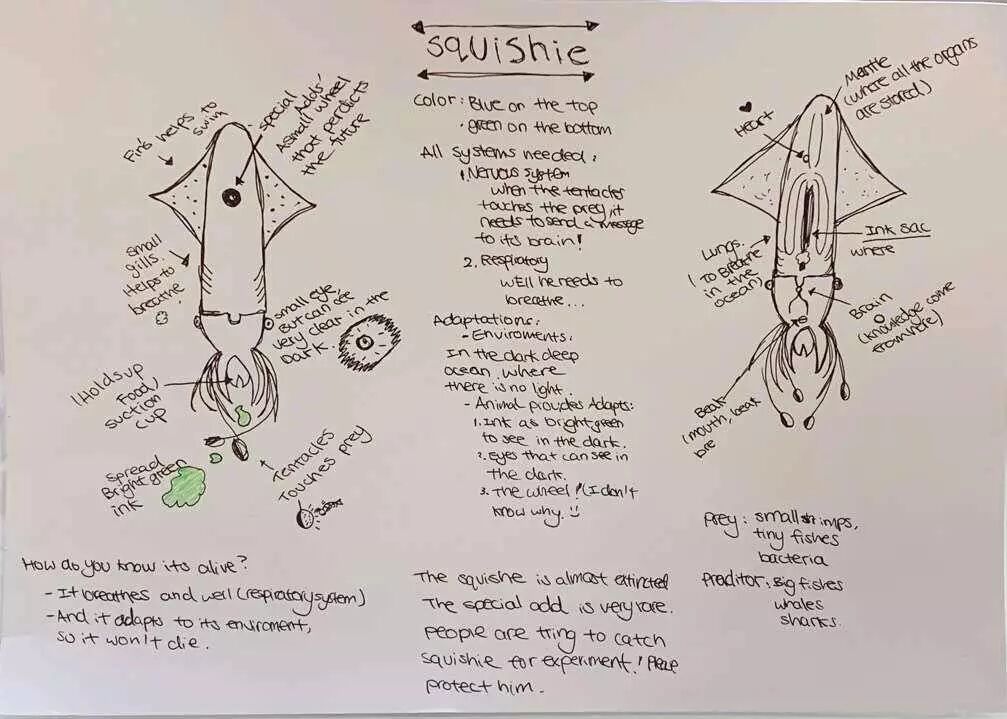 squishie
Fin's helps to
swim
special
Adds'
A small wheel
that perdicts
the future
small
gills.
Helps to
breathe
small eye,
But can see
very clear in the
Dark.
(Holds up
Food,
suction
cup
spread
Bright green
ink
Tentacles
Touches prey
How do you know its alive?
- It breathes and well (respiratory system)
- And it adapts to its enviroment,
so it won't die.
Color: Blue on the top
· green on the bottom
All systems needed:
1. Nervous system
when the tentacles
touches the prey, it
needs to send a message
to its brain!
2. Respiratory
well he needs to
breathe...
Adaptations:
- Enviroments:
In the dark deep
ocean where
there is no light.
- Animal provides Adapts:
1. Ink as bright green
to see in the dark.
2. Eyes that can see in
the dark.
3. The wheel! (I don't
know why.
The squishe is almost extincted
The special add is very rare.
people are tring to catch
squishie for experiment! Please
protect him.
Mantle
(where all the organs
are stored)
Heart
Ink sac
where
Lungs.
(To Breathe
in the
ocean)
Brain
(knowledge come
from here)
Beak
(mouth, beak
bite
prey: small shrimps,
tiny fishes
bacteria
Preditor: Big fishes
whales
sharks.